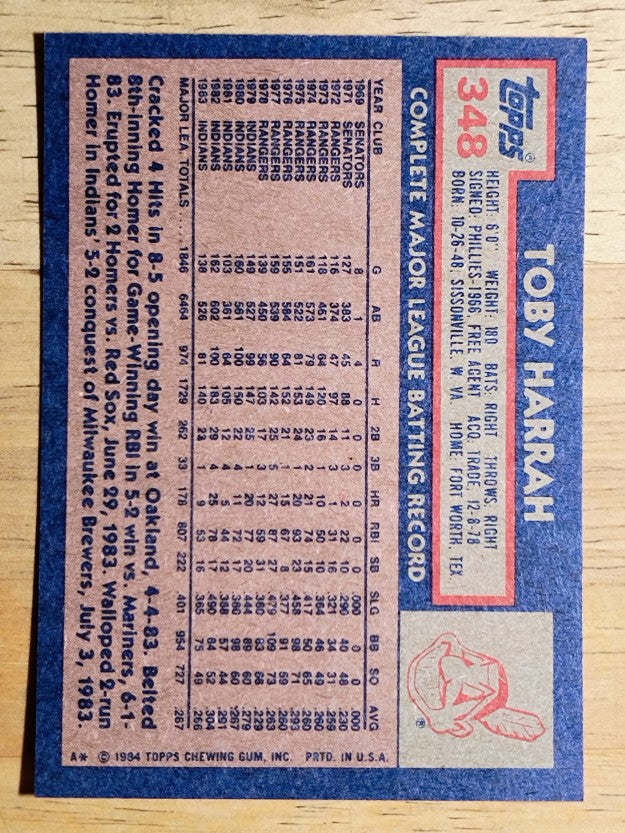 topps®
348
TOBY HARRAH
HEIGHT: 6'0" WEIGHT: 180 BATS: RIGHT THROWS: RIGHT
SIGNED: PHILLIES-1966 FREE AGENT ACQ: TRADE, 12-8-78
BORN: 10-26-48, SISSONVILLE, W. VA. HOME: FORT WORTH, TEX.
COMPLETE MAJOR LEAGUE BATTING RECORD
®
YEAR CLUB G AB R H 2B 3B HR RBI SB SLG BB SO AVG
1969 SENATORS 8 1 4 0 0 0 0 0 0 .000 0 0 .000
1971 SENATORS 127 383 45 88 11 3 2 22 10 .290 40 48 .230
1972 RANGERS 116 374 47 97 14 3 1 31 16 .321 34 31 .259
1973 RANGERS 118 461 64 120 16 1 10 50 10 .364 46 49 .260
1974 RANGERS 161 573 79 149 23 2 21 74 15 .417 50 65 .260
1975 RANGERS 151 522 81 153 24 1 20 93 23 .458 98 71 .293
1976 RANGERS 155 584 64 152 21 1 15 67 8 .377 91 59 .260
1977 RANGERS 159 539 90 142 25 5 27 87 27 .479 109 73 .263
1978 RANGERS 139 450 56 103 17 3 12 59 31 .360 83 66 .229
1979 INDIANS 149 527 99 147 25 1 20 77 20 .444 89 60 .279
1980 INDIANS 160 561 100 150 22 4 11 72 17 .380 98 60 .267
1981 INDIANS 103 361 64 105 12 4 5 44 12 .388 57 44 .291
1982 INDIANS 162 602 100 183 29 4 25 78 17 .490 84 52 .304
1983 INDIANS 138 526 81 140 23 1 9 53 16 .365 75 49 .266
MAJOR LEA. TOTALS..... 1846 6464 974 1729 262 33 178 807 222 .401 954 727 .267
Cracked 4 Hits in 8-5 opening day win at Oakland, 4-4-83. Belted
8th-inning Homer for Game-Winning RBI in 5-2 win vs. Mariners, 6-1-
83. Erupted for 2 Homers vs. Red Sox, June 29, 1983. Walloped 2-run
Homer in Indians' 5-2 conquest of Milwaukee Brewers, July 3, 1983.
A* © 1984 TOPPS CHEWING GUM, INC. PRTD. IN U.S.A.